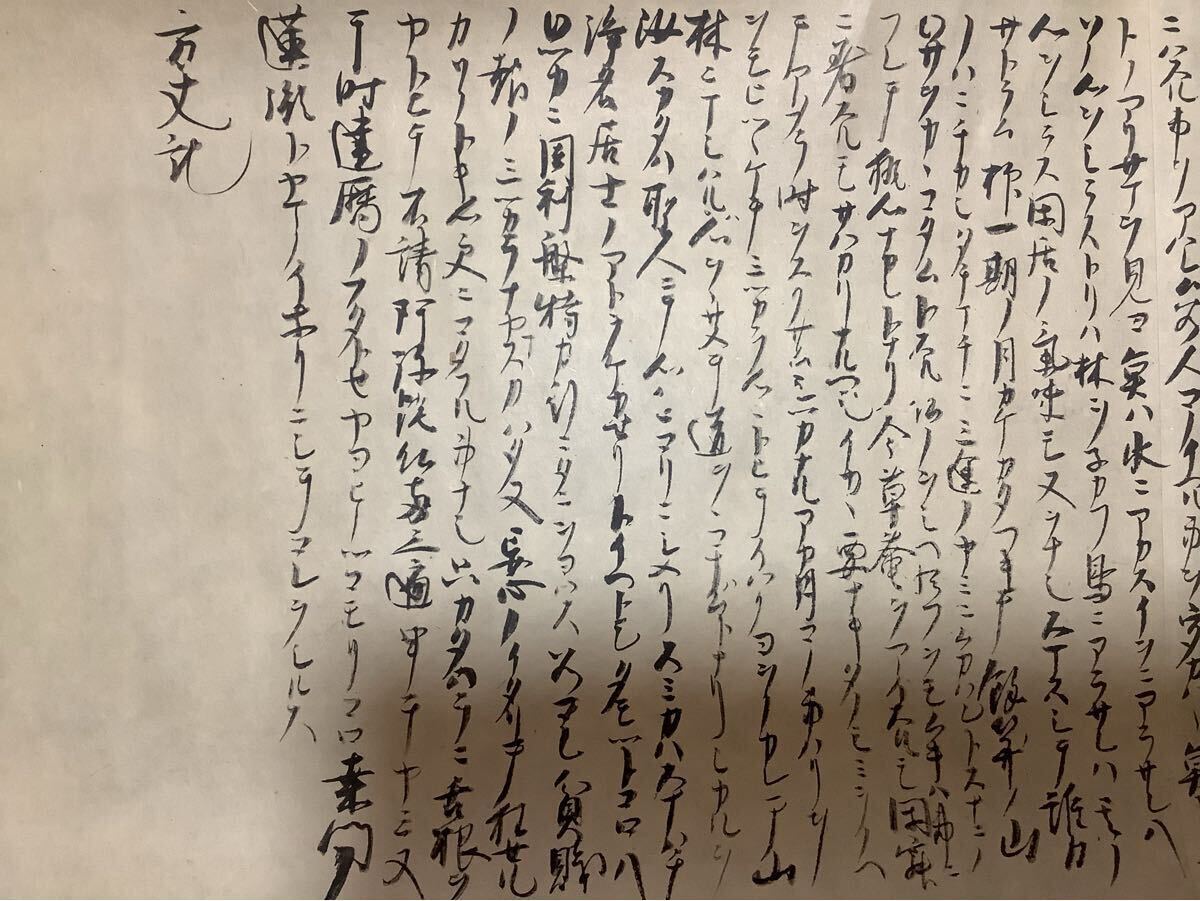 ニハ不及若人コノイヘル事ヲウタカハヽ魚
トノアリサマヲ見ヨ魚ハ水ニアカスイヲニアラサレハ
ソノ心ヲシラストリハ林ヲネカフ鳥ニアラサレハ其ノ
心ヲシラス閑居ノ気味モ又ヲナシスマスシテ誰カ
サトラム抑一期ノ月カケカタフキテ餘算ノ山
ノハニチカシタチマチニ三途ノヤミニムカハムトスナニノ
ワサヲカカコタムトスル仏ノヲシヘ給フヲモムキハ事ニ
フレテ執心ナカレトナリ今草菴ヲアイスルモ閑寂
ニ著スルモサハカリナルヘシイカヽ要ナキタノシミヲノヘ
テアタラ時ヲスクサムシツカナルアカ月コノ事ハリヲ
ヲモヒツヽケテミツカラ心ニトヒテイハクヨヲノカレテ山
林ニマシハルハ心ヲヲサメテ道ヲヲコナハムトナリシカルヲ
汝スカタハ聖人ニテ心ハニコリニシメリスミカハスナハチ
浄名居士ノアトヲケカセリトイヘトモタモツトコロハ
ワツカニ周利槃特カ行ニタニヲヨハス若コレ貧賤
ノ報ノミツカラナヤマスカハタ又妄心ノイタリテ狂セル
カソノトキ心更ニコタフル事ナシ只カタハラニ舌根ヲ
ヤトヒテ不請阿弥陀仏両三遍申テヤミヌ
于時建暦ノフタトセヤヨヒノツコモリコロ桑門ノ
蓮胤トヤマノイホリニシテコレヲシルス
方丈記